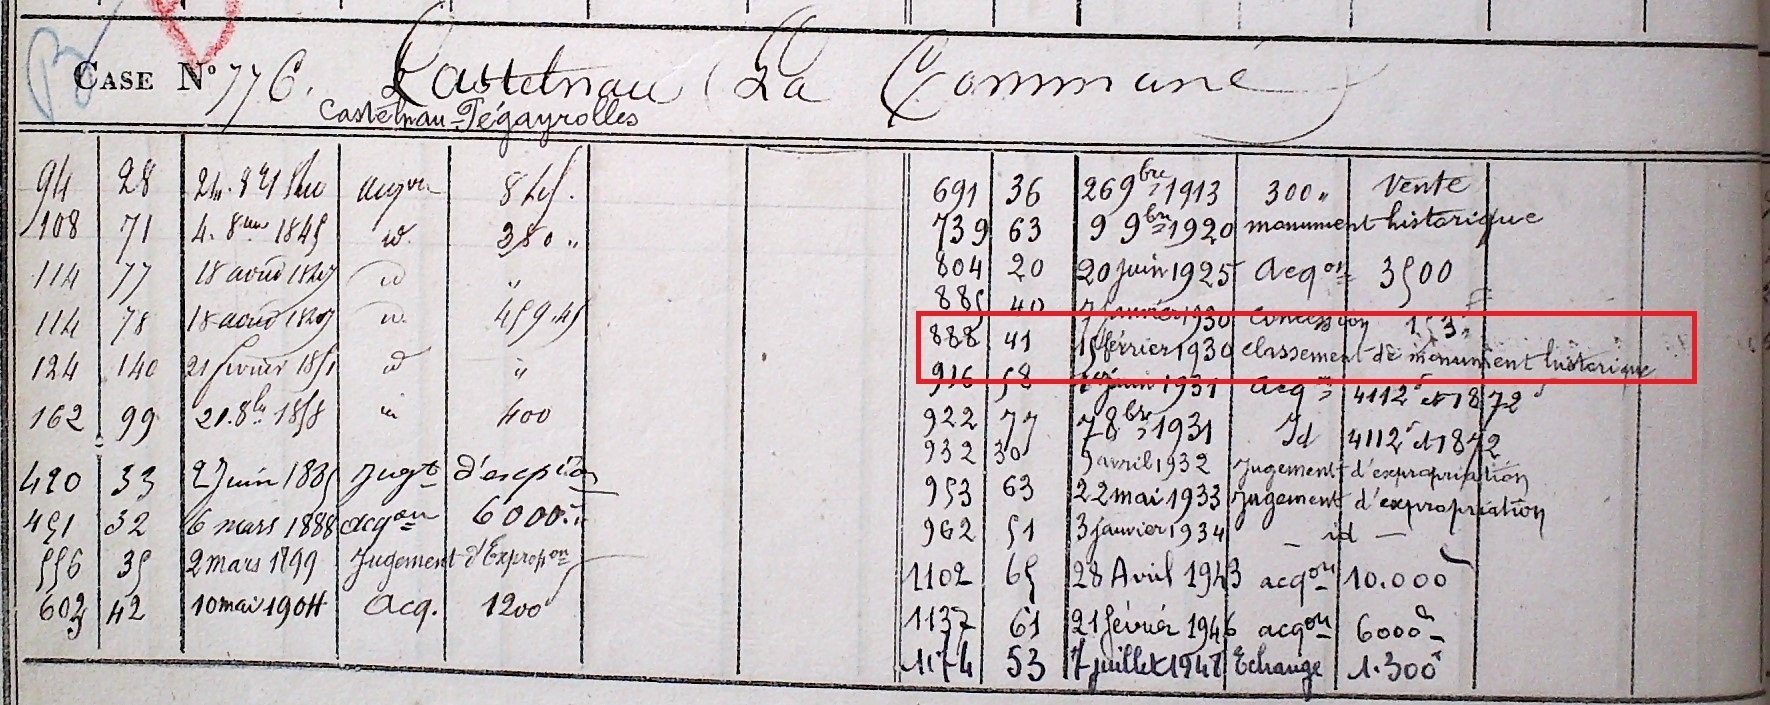 CASE N° 776. Castelnau (La Commune)
Castelnau-Pégayrolles
94 28 acqon
108 71 4. 8bre 1845 id. 380 "
114 77 18 août 1847 id "
114 78 18 août 1847 id. 459.45
124 140 21 février 1851 id "
162 99 21. 8bre 1858 id 400
420 33 2 Juin 1885 Jugt
451 32 6 mars 1888 acqon 6000. "
556 35 2 mars 1899 Jugement d'Expropon
42 10 mai 1904 Acq. 1200
691 36 26 9bre 1913 300 " Vente
739 63 9 9bre 1920 monument historique
804 20 20 juin 1925 Acqon 3500
885 40 7 janvier 1930 Concession 153
888 41 15 février 1930 classement de monument historique
916 58 juin 1931 Acqon 4112 et 1872
922 77 7 8bre 1931 Id 4112 et 1872
932 30 9 avril 1932 Jugement d'expropriation
953 63 22 mai 1933 Jugement d'expropriation
962 51 3 janvier 1934 - id -
1102 65 28 Avril 1943 acqon 10.000
1137 61 21 février 1946 acqon 6000
1174 53 7 juillet 1947 Echange 1.300